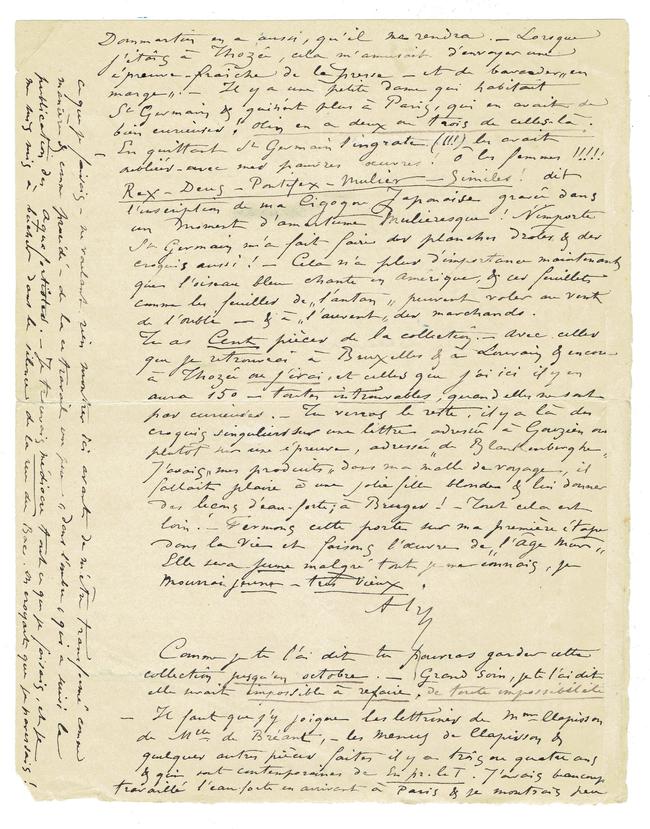 Dommartin en a aussi, qu'il me rendra. — Lorsque
j'étais à Thozée, cela m'amusait d'envoyer une
épreuve fraîche de la presse — et de bavarder „en
marge". — Il y a une petite dame qui habitait
St Germain & quinze plus à Paris, qui en avait de
bien curieuses! Olin en a deux ou trois de celles-là.
En quittant St Germain l'ingrate (!!!) les avait
oubliés avec mes pauvres œuvres! Ô les femmes !!!!
Rex — Deus — Pontifex — Mulier — Similes! dit
l'inscription de ma Cigogne Japonaise gravée dans
un moment d'amertume Mulieresque! N'importe
St Germain m'a fait faire des planches drôles & des
croquis aussi! — Cela n'a plus d'importance maintenant
que l'oiseau bleu chante en Amérique, & ces feuillets
comme les feuilles de „l'antan" peuvent voler au vent
de l'oubli — & à „l'auvent" des marchands.
Tu as Cent pièces de la collection. — Avec celles
que je retrouverai à Bruxelles & à Louvain & encore
à Thozée où j'irai, et celles que j'ai ici il y en
aura 150 — toutes introuvables, quand elles ne sont
pas curieuses. — Tu verras le reste, il y a là des
croquis singuliers sur une lettre adressée à Gouzien ou
plutôt sur une épreuve, adressée de Blankenberghe.
J'avais „mes produits" dans ma malle de voyage, il
fallait plaire à une jolie fille blonde & lui donner
des leçons d'eau-forte, à Bruges! — Tout cela est
loin! — Fermons cette porte sur ma première étape
dans la Vie et faisons l'œuvre de „l'Âge Mûr"
Elle sera jeune malgré tout je me connais, je
mourrai jeune — très vieux.
Comme je te l'ai dit tu pourras garder cette
collection jusqu'en octobre. — Grand soin, je te l'ai dit
elle serait impossible à refaire, de toute impossibilité
— Il faut que j'y joigne les lettrines de Mme Clapisson
de Mlle de Bréant, — les menus de Clapisson &
quelques autres pièces faites il y a trois ou quatre ans
& qui sont contemporaines de En pr. le T. J'avais beaucoup
travaillé l'eau forte en arrivant à Paris & je montrais peu
ce que je faisais — ne voulant rien montrer ici avant de m'être transformé comme
manière & comme procédé de la
publication des aquafortistes. — Je trouvais médiocre tout ce que je faisais, et je
me suis mis à bûcher dans le silence de la rue du Bac. On croyait que je paressais!